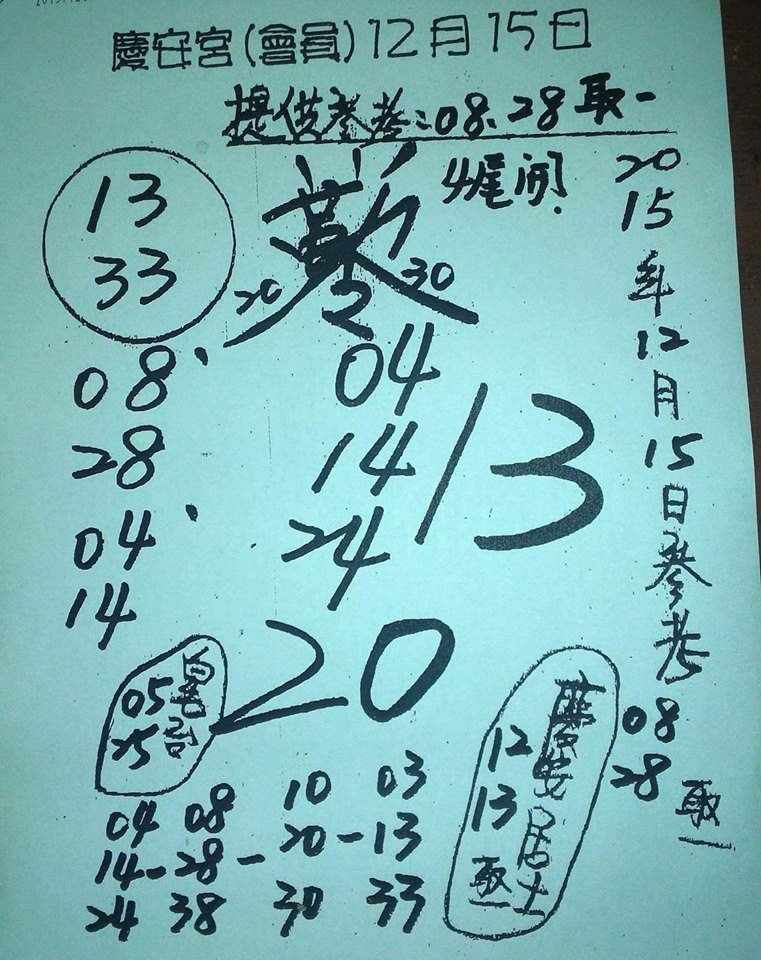 慶安宮(會員)12月15日
提供參考:08、28取一
4尾開
13
33
20 30
2
08
28
04
14
04
14
24
13
20
2015年12月15日參考
08
28
取一
05
25
慶安居士
12
13
取一
04 08 10 03
14-28-20-13
24 38 30 33